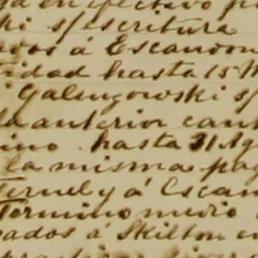 en efectivo
ki s/escritura
ados á Escandon
idad hasta 15 M
Galengowski s/
la anterior cant
ino. hasta 31 Ag
la misma pag
Ternel y á Escan
Termino medio
gados á Skilton en